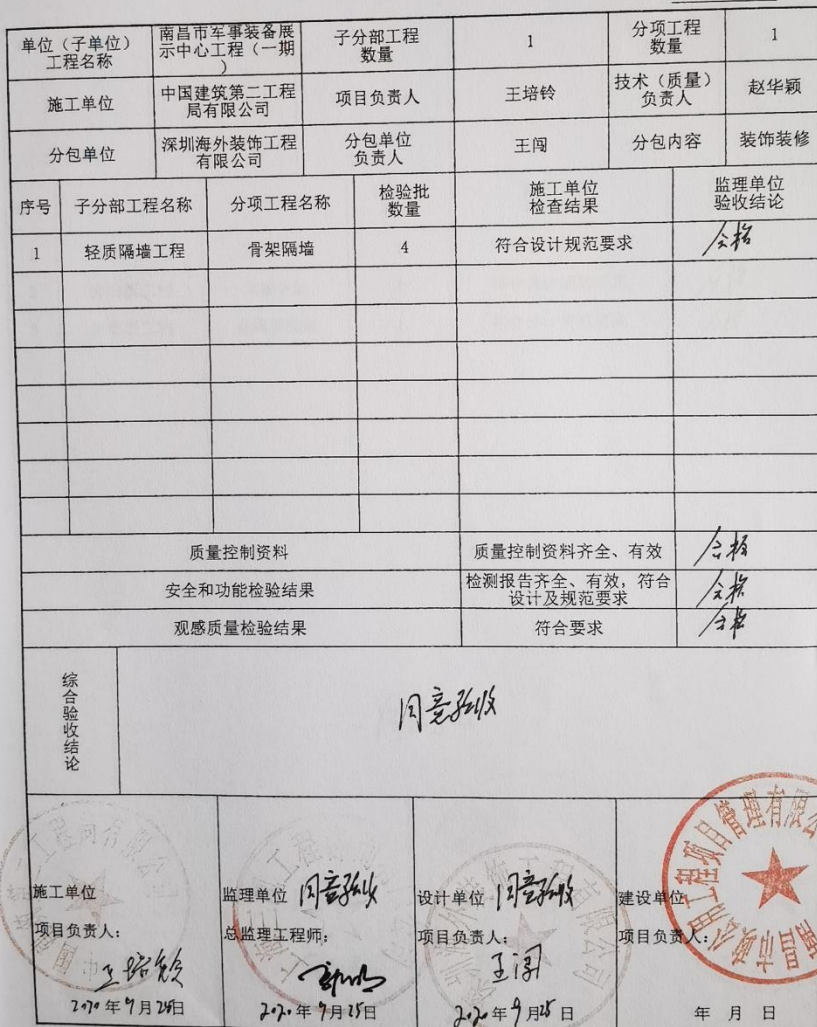 单位（子单位）
工程名称
南昌市军事装备展
示中心工程（一期
）
子分部工程
数量
1
分项工程
数量
1
施工单位
中国建筑第二工程
局有限公司
项目负责人
王培铃
技术（质量）
负责人
赵华颖
分包单位
深圳海外装饰工程
有限公司
分包单位
负责人
王闯
分包内容
装饰装修
序号
子分部工程名称
分项工程名称
检验批
数量
施工单位
检查结果
监理单位
验收结论
1
轻质隔墙工程
骨架隔墙
4
符合设计规范要求
合格
质量控制资料
质量控制资料齐全、有效
合格
安全和功能检验结果
检测报告齐全、有效，符合
设计及规范要求
合格
观感质量检验结果
符合要求
合格
综合验收结论
同意验收
施工单位
项目负责人：
王培铃
2020年9月25日
监理单位 同意验收
总监理工程师：
2020年9月25日
设计单位 同意验收
项目负责人：
王闯
2020年9月25日
建设单位
项目负责人：
年 月 日